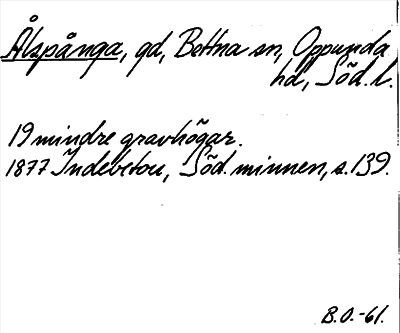 Ålspånga, gd, Bettna sn, Oppunda
hd, Söd. l.
19 mindre gravhögar.
1877 Indebetou, Söd. minnen, s. 139.
B.O.-61.